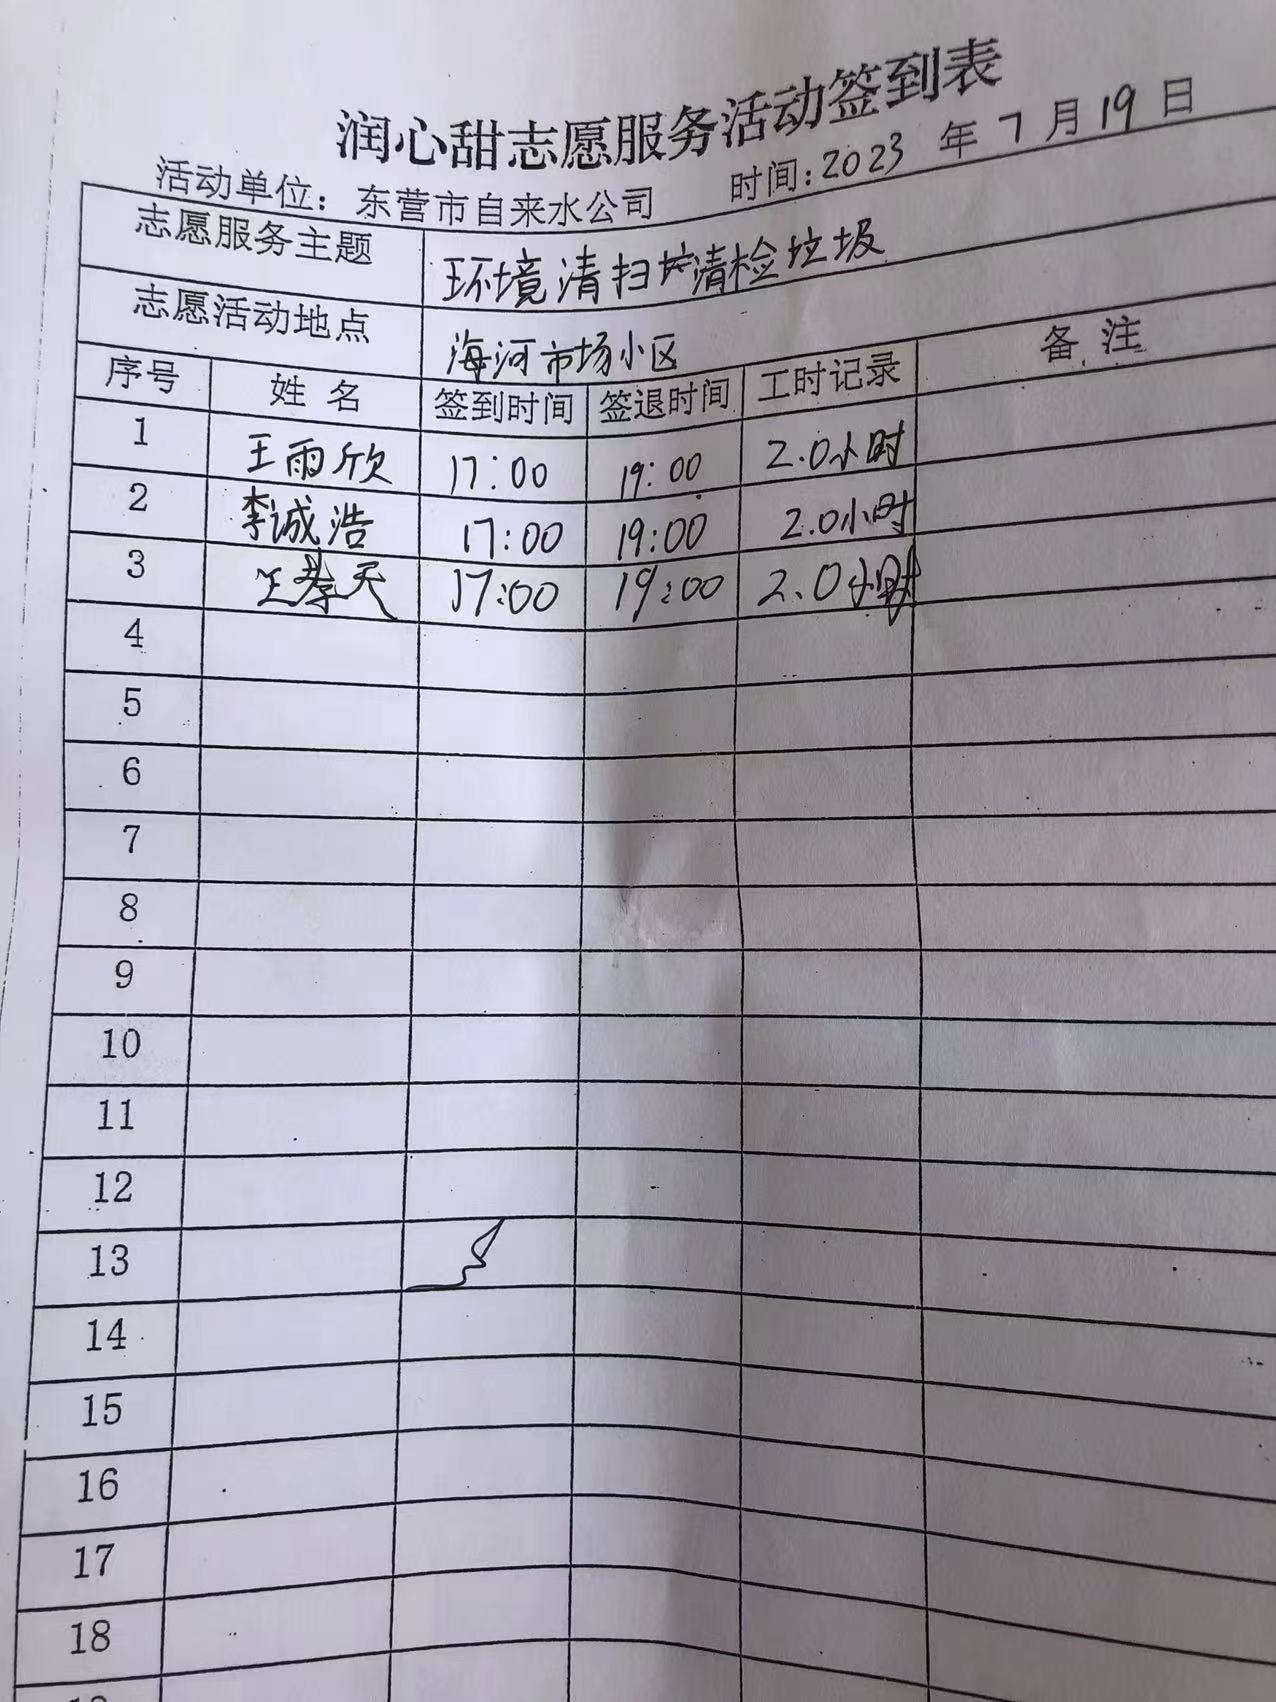 润心甜志愿服务活动签到表
活动单位：东营市自来水公司 时间：2023 年 7 月 19 日
志愿服务主题 环境清扫 清检垃圾
志愿活动地点 海河市场小区
序号 姓名 签到时间 签退时间 工时记录 备注
1 王雨欣 17:00 19:00 2.0小时
2 李诚浩 17:00 19:00 2.0小时
3 王 天 17:00 19:00 2.0小时
4
5
6
7
8
9
10
11
12
13
14
15
16
17
18